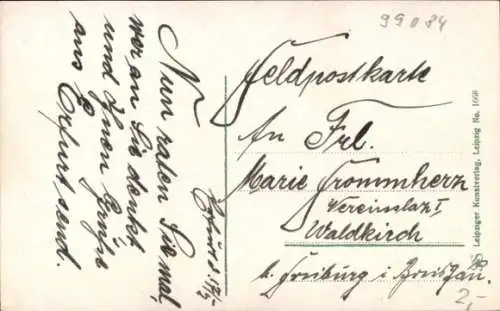 99084
Nun raten Sie mal,
wer an Sie denkt
und Ihnen Grüße
aus Erfurt send.
Erfurt d.
Feldpostkarte
An Frl.
Marie Frommherz
Vereinslaz I
Waldkirch
b. Freiburg i Breisgau.
Leipziger Kunstverlag, Leipzig No.
2,-